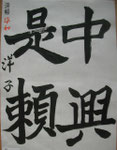 中興
是頼
洋子